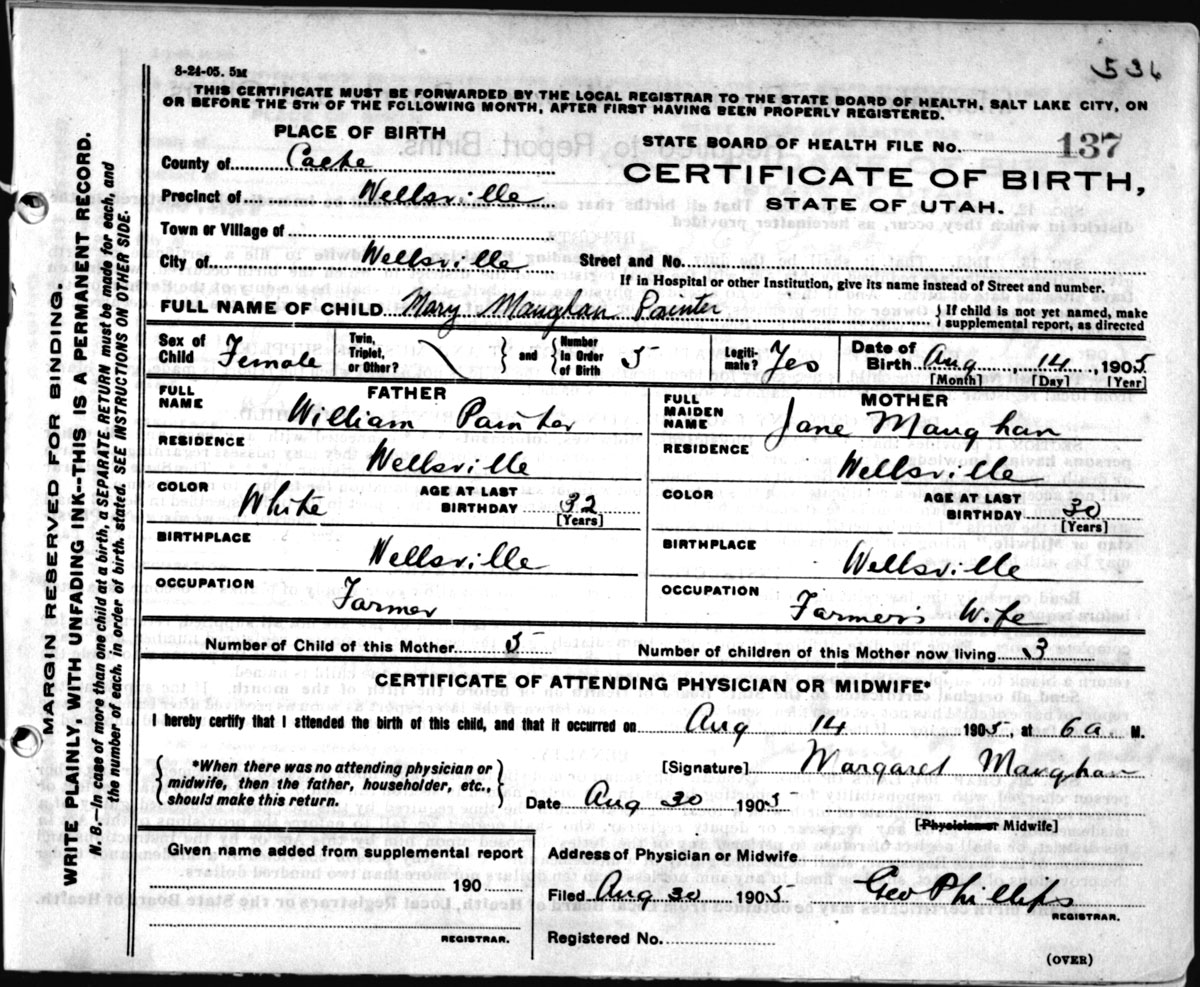 536
8-24-05. 5M
THIS CERTIFICATE MUST BE FORWARDED BY THE LOCAL REGISTRAR TO THE STATE BOARD OF HEALTH, SALT LAKE CITY, ON
OR BEFORE THE 5TH OF THE FOLLOWING MONTH, AFTER FIRST HAVING BEEN PROPERLY REGISTERED.
PLACE OF BIRTH
STATE BOARD OF HEALTH FILE No. 137
County of Cache
CERTIFICATE OF BIRTH,
Precinct of Wellsville
STATE OF UTAH.
Town or Village of
City of Wellsville Street and No.
If in Hospital or other Institution, give its name instead of Street and number.
FULL NAME OF CHILD Mary Maughan Painter { If child is not yet named, make supplemental report, as directed
Sex of Child Female Twin, Triplet, or Other? } and { Number in Order of Birth 5 Legiti-mate? Yes Date of Birth Aug 14, 1905
[Month] [Day] [Year]
FATHER
FULL NAME William Painter
RESIDENCE Wellsville
COLOR White AGE AT LAST BIRTHDAY 32
[Years]
BIRTHPLACE Wellsville
OCCUPATION Farmer
MOTHER
FULL MAIDEN NAME Jane Maughan
RESIDENCE Wellsville
COLOR AGE AT LAST BIRTHDAY 30
[Years]
BIRTHPLACE Wellsville
OCCUPATION Farmer's Wife
Number of Child of this Mother 5 Number of children of this Mother now living 3
CERTIFICATE OF ATTENDING PHYSICIAN OR MIDWIFE*
I hereby certify that I attended the birth of this child, and that it occurred on Aug 14 1905, at 6 a M.
{ *When there was no attending physician or
midwife, then the father, householder, etc.,
should make this return. }
[Signature] Margaret Maughan
Date Aug 30 1905
[Physician or Midwife]
Given name added from supplemental report
190
REGISTRAR.
Address of Physician or Midwife
Filed Aug 30 1905 Geo Phillips
REGISTRAR.
Registered No.
(OVER)
MARGIN RESERVED FOR BINDING.
WRITE PLAINLY, WITH UNFADING INK--THIS IS A PERMANENT RECORD.
N. B.--In case of more than one child at a birth, a SEPARATE RETURN must be made for each, and
the number of each, in order of birth, stated. SEE INSTRUCTIONS ON OTHER SIDE.